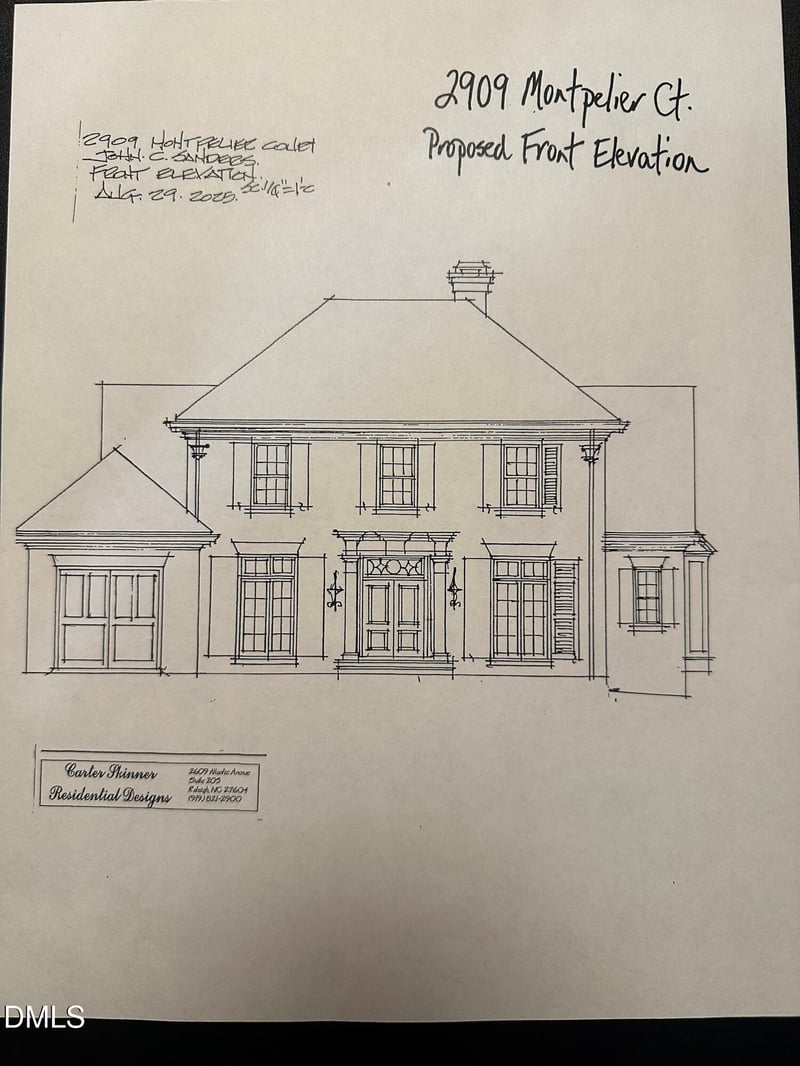 2909 Montpelier Ct.
Proposed Front Elevation
2909 MONTPELIER COURT
JOHN. C. SANDERS.
FRONT ELEVATION.
AUG. 29. 2025. SC. 1/4"=1'0
Carter Skinner
Residential Designs
2609 Atlantic Avenue
Suite 205
Raleigh, NC 27604
(919) 821-2900
DMLS